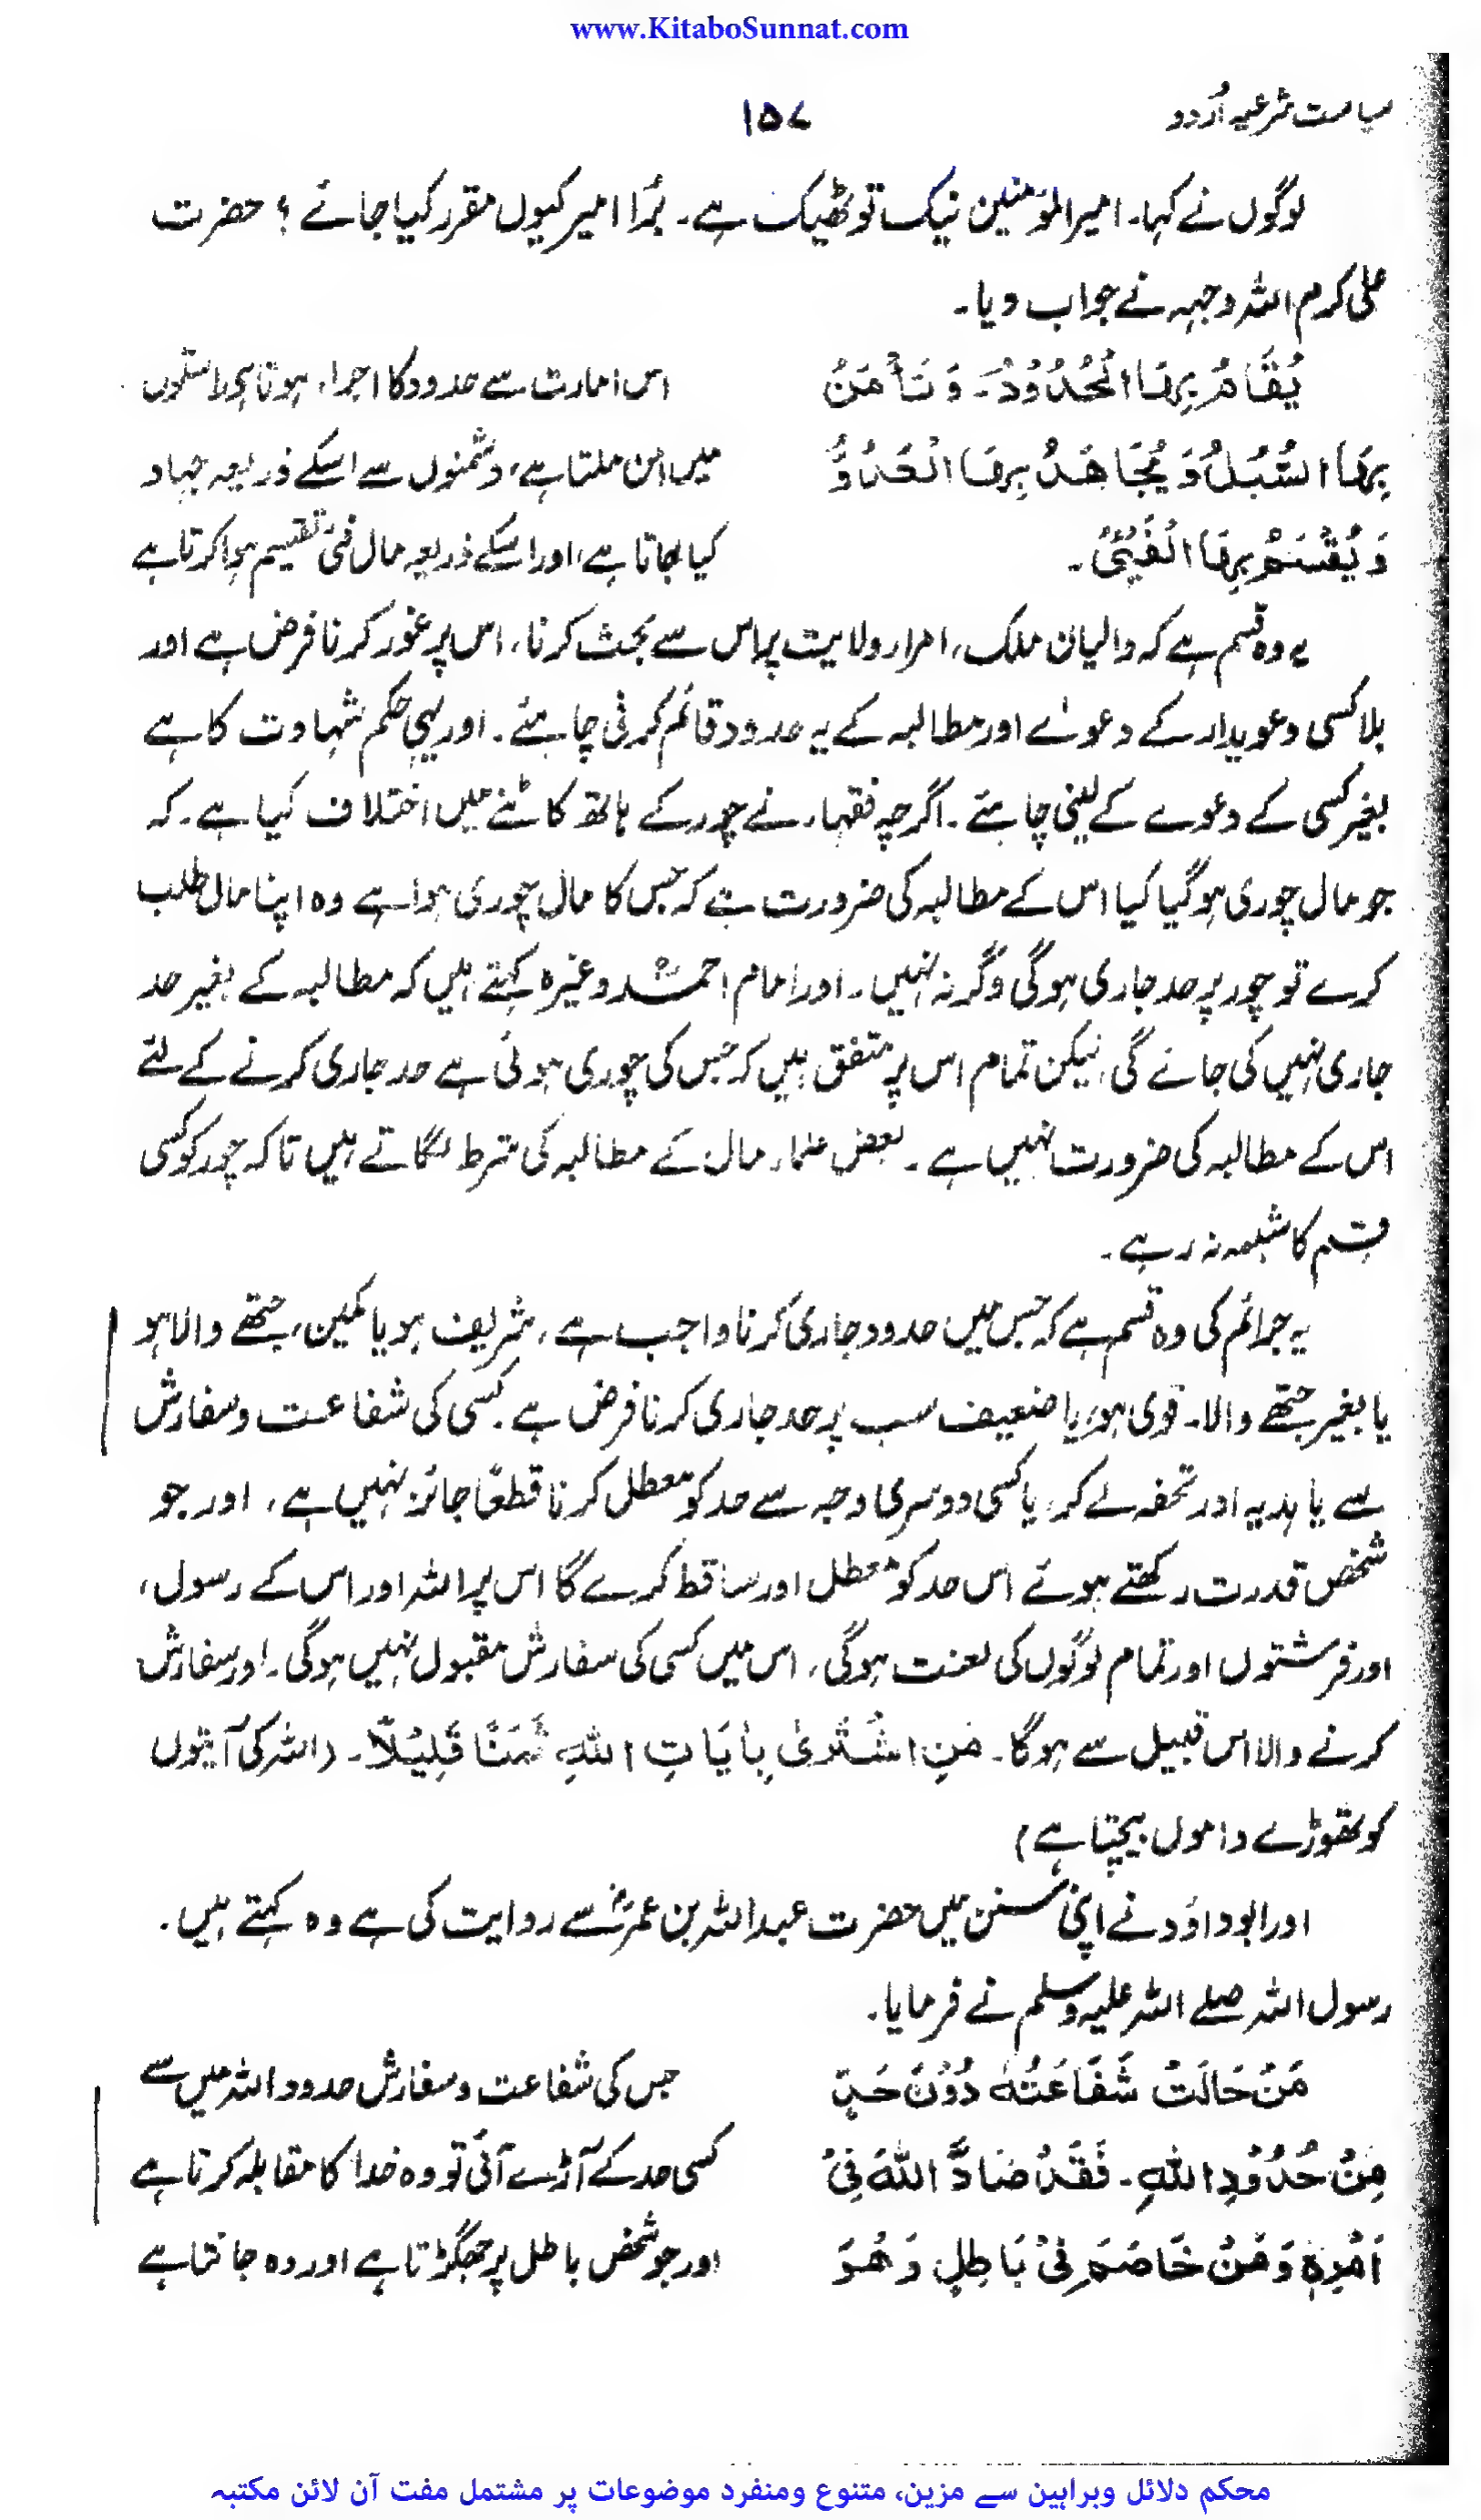 www.KitaboSunnat.com
سیاست شرعیہ اُردو
۱۵۷
لوگوں نے کہا۔ امیرالمؤمنین نیک تو ٹھیک ہے۔ بُرا امیر کیوں مقرر کیا جائے ؟ حضرت
علی کرم اللہ وجہہ نے جواب دیا۔
یُقَامُ بِهَا الْحُدُوْدُ۔ وَ تَأْمَنُ
اس امارت سے حدود کا اجراء ہوتا ہی راستوں
بِهَا السُّبُلُ وَ یُجَاهَدُ بِهَا الْعَدُوُّ
میں امن ملتا ہے، دشمنوں سے اسکے ذریعہ جہاد
وَ یُقْسَمُ بِهَا الْفَیْئُ۔
کیا جاتا ہے، اور اسکے ذریعہ مال فئ تقسیم ہوا کرتا ہے
یہ وہ قسم ہے کہ والیان ملک، امراء ولایت پر اس سے بحث کرنا، اس پر غور کرنا فرض ہے اور
بلا کسی دعویدار کے دعوٰے اور مطالبہ کے یہ حدود قائم کرنی چاہئے۔ اور یہی حکم شہادت کا ہے
بغیر کسی کے دعوے کے لینی چاہئے۔ اگرچہ فقہاء نے چور کے ہاتھ کاٹنے میں اختلاف کیا ہے۔ کہ
جو مال چوری ہو گیا کیا اس کے مطالبہ کی ضرورت ہے کہ جس کا مال چوری ہوا ہے وہ اپنا مال طلب
کرے تو چور پر حد جاری ہوگی وگرنہ نہیں۔ اور امام احمدؒ وغیرہ کہتے ہیں کہ مطالبہ کے بغیر حد
جاری نہیں کی جائے گی، لیکن تمام اس پر متفق ہیں کہ جس کی چوری ہوئی ہے حد جاری کرنے کے لئے
اس کے مطالبہ کی ضرورت نہیں ہے۔ بعض علماء مال کے مطالبہ کی شرط لگاتے ہیں تاکہ چور کو کسی
قسم کا شبھہ نہ رہے۔
یہ جرائم کی وہ قسم ہے کہ جس میں حدود جاری کرنا واجب ہے، شریف ہو یا کمین، جتھے والا ہو
یا بغیر جتھے والا۔ قوی ہو، یا ضعیف سب پر حد جاری کرنا فرض ہے۔ کسی کی شفاعت و سفارش
سے یا ہدیہ اور تحفہ لے کر، یا کسی دوسری وجہ سے حد کو معطل کرنا قطعًا جائز نہیں ہے، اور جو
شخص قدرت رکھتے ہوئے اس حد کو معطل اور ساقط کرے گا اس پر اللہ اور اس کے رسول،
اور فرشتوں اور تمام لوگوں کی لعنت ہوگی، اس میں کسی کی سفارش مقبول نہیں ہوگی۔ اور سفارش
کرنے والا اس قبیل سے ہوگا۔ مَنِ اشْتَرٰی بِاٰیَاتِ اللهِ ثَمَنًا قَلِیْلًا۔ (اللہ کی آیتوں
کو تھوڑے داموں بیچتا ہے)
اور ابوداؤد نے اپنی سنن میں حضرت عبداللہ بن عمرؓ سے روایت کی ہے وہ کہتے ہیں۔
رسول اللہ صلے اللہ علیہ وسلم نے فرمایا۔
مَنْ حَالَتْ شَفَاعَتُهٗ دُوْنَ حَدٍّ
جس کی شفاعت و سفارش حدود اللہ میں سے
مِنْ حُدُوْدِ اللهِ۔ فَقَدْ ضَادَّ اللهَ فِیْ
کسی حد کے آڑے آئی تو وہ خدا کا مقابلہ کرتا ہے
اَمْرِهٖ وَ مَنْ خَاصَمَ فِیْ بَاطِلٍ وَ هُوَ
اور جو شخص باطل پر جھگڑتا ہے اور وہ جانتا ہے
محکم دلائل وبراہین سے مزین، متنوع ومنفرد موضوعات پر مشتمل مفت آن لائن مکتبہ